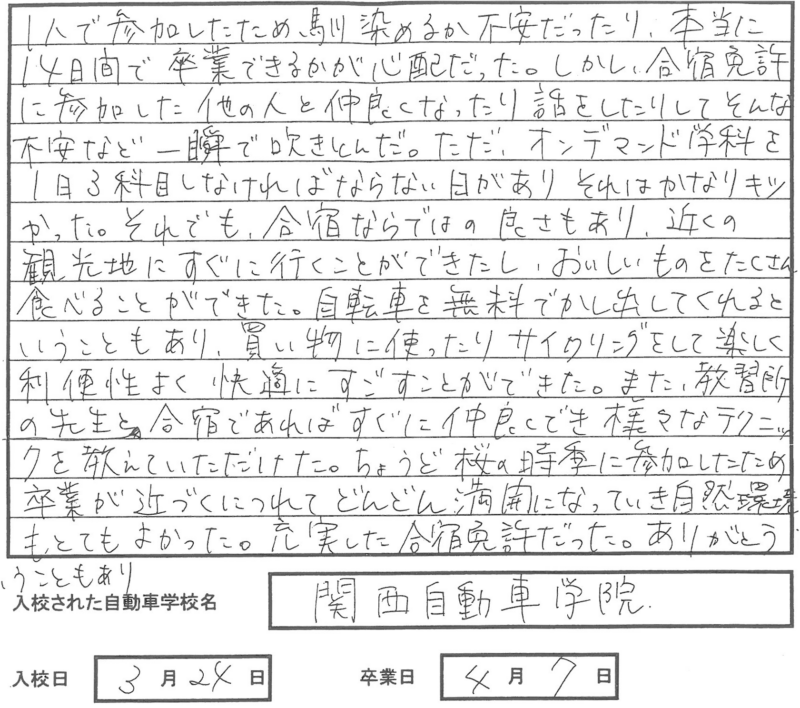 1人で参加したため、馴染めるか不安だったり、本当に
14日間で卒業できるかが心配だった。しかし、合宿免許
に参加した他の人と仲良くなったり話をしたりしてそんな
不安など一瞬で吹きとんだ。ただ、オンデマンド学科を
1日3科目しなければならない日がありそれはかなりキツ
かった。それでも、合宿ならではの良さもあり、近くの
観光地にすぐに行くことができたし、おいしいものをたくさん
食べることができた。自転車を無料でかし出してくれると
いうこともあり、買い物に使ったりサイクリングをして楽しく
利便性よく快適にすごすことができた。また、教習所
の先生とも合宿であればすぐに仲良くでき様々なテクニッ
クを教えていただけた。ちょうど桜の時季に参加したため
卒業が近づくにつれてどんどん満開になっていき自然環境
も、とてもよかった。充実した合宿免許だった。ありがとう
うこともあり
入校された自動車学校名 関西自動車学院.
入校日 3月24日 卒業日 4月7日